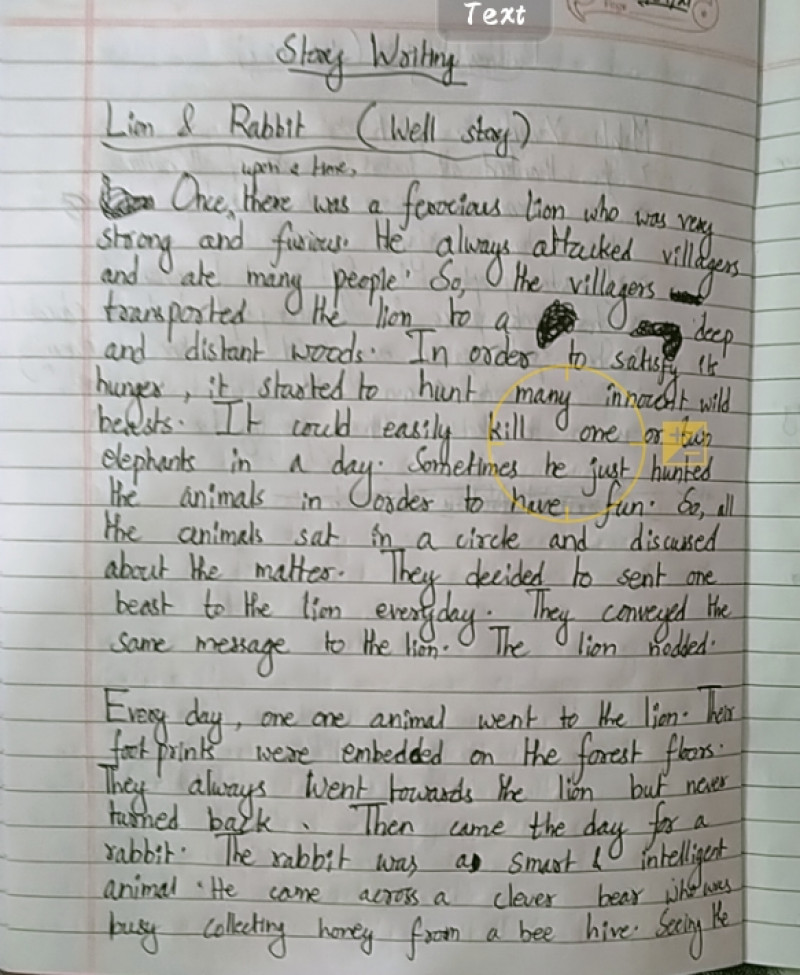 Text
Story Writing
Lion & Rabbit (Well story)
upon a time,
Once, there was a ferocious lion who was very
strong and furious. He always attacked villagers
and ate many people. So, the villagers
transported the lion to a deep
and distant woods. In order to satisfy its
hunger, it started to hunt many innocent wild
beasts. It could easily kill one or two
elephants in a day. Sometimes he just hunted
the animals in order to have fun. So, all
the animals sat in a circle and discussed
about the matter. They decided to sent one
beast to the lion everyday. They conveyed the
same message to the lion. The lion nodded.
Every day, one one animal went to the lion. Their
foot prints were embedded on the forest floors.
They always went towards the lion but never
turned back. Then came the day for a
rabbit. The rabbit was a smart & intelligent
animal. He came across a clever bear who was
busy collecting honey from a bee hive. Seeing the